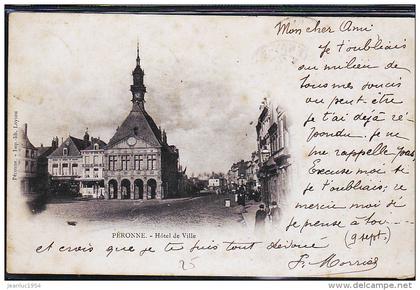 Mon cher Ami
Je t'oubliais
au milieu de
tous mes soucis
ou peut être
je t'ai déjà ré
pondu, je ne
me rappelle pas,
Excuse moi si
je t'oubliais;
merci moi si
je pense à toi
(9 sept.)
et crois que je t'en suis tout dévoué
PÉRONNE. - Hôtel de Ville
25
www.delcampe.net
jeanluc1954